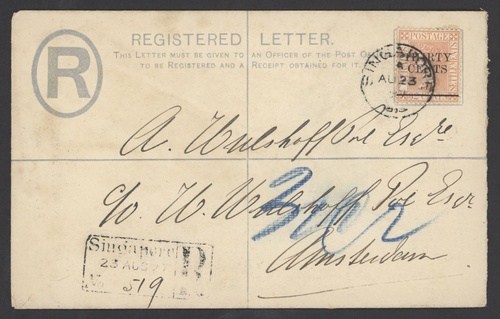 REGISTERED LETTER.
THIS LETTER MUST BE GIVEN TO AN OFFICER OF THE POST OFFICE
TO BE REGISTERED AND A RECEIPT OBTAINED FOR IT.
R
SINGAPORE
A
AU 23
POSTAGE
THIRTY
CENTS
A. Wulshoff Pol Esqre.
c/o W. Wulshoff Pol Esqr
Amsterdam
Singapore
R
23 AUG 97
No 519